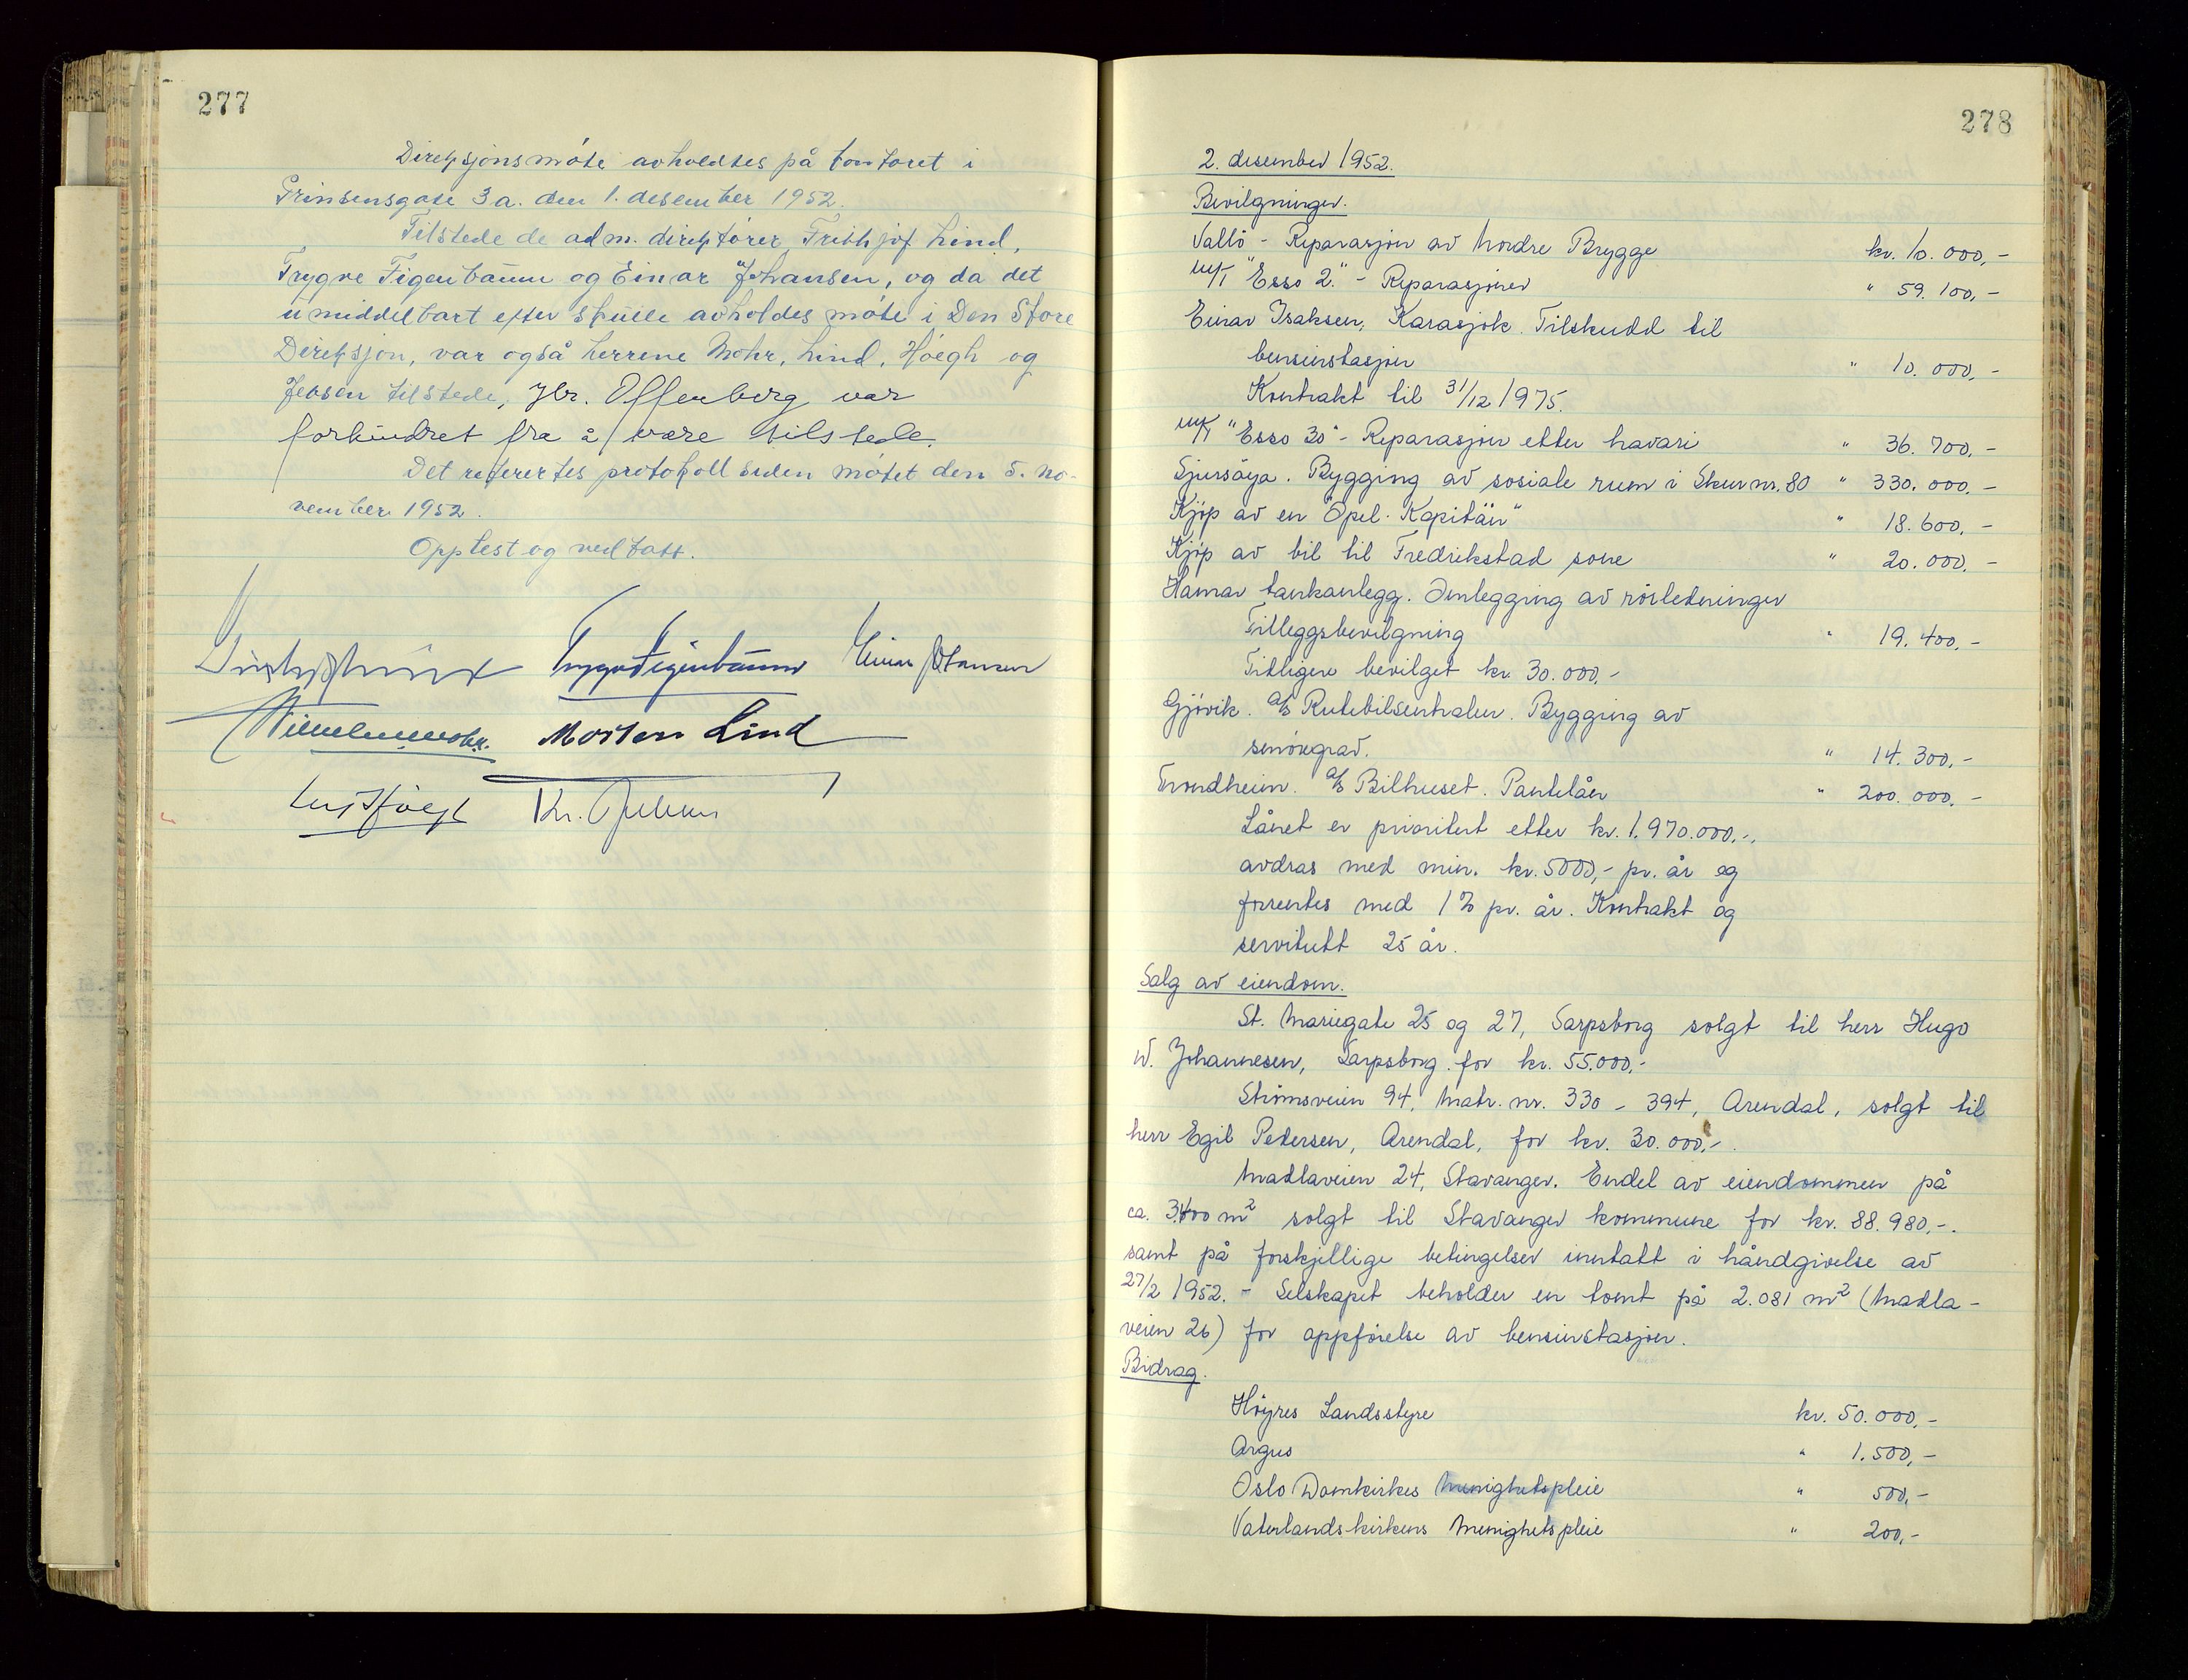 277
Direksjonsmöte avholdtes på kontoret i
Prinsensgate 3a. den 1. desember 1952.
Tilstede de adm. direktörer, Fridthjof Lind,
Trygve Figenbaum og Einar Johansen, og da det
umiddelbart efter skulle avholdes möte i Den Store
Direksjon, var også herrene Mohr, Lind, Höegh og
Jebsen tilstede, Hr. Offenberg var
forhindret fra å være tilstede.
Det referertes protokoll siden mötet den 5. no-
vember 1952.
Opplest og vedtatt.
Trygve Figenbaum Einar Johansen
Wilhelm Mohr. Morten Lind
Leif Höegh Kr. Jebsen
278
2. desember 1952.
Bevilgninger.
Vallö - Reparasjon av Nordre Brygge kr. 10.000,-
M/T "Esso 2." - Reparasjoner " 59.100,-
Einar Isaksen, Karasjok. Tilskudd til
bensinstasjon " 10.000,-
Kontrakt til 31/12 1975.
M/T "Esso 30" - Reparasjon etter havari " 36.700,-
Sjursöya. Bygging av sosiale rum i Skur nr. 80 " 330.000,-
Kjöp av en "Opel-Kapitän" " 18.600,-
Kjöp av bil til Fredrikstad sone " 20.000,-
Hamar tankanlegg. Omlegging av rörledninger
Tilleggsbevilgning " 19.400,-
Tidligere bevilget kr. 30.000,-
Gjövik. A/S Rutebilsentralen. Bygging av
smöregrav. " 14.300,-
Trondheim. A/S Bilhuset. Pantelån " 200.000,-
Lånet er prioritert etter kr. 1.970.000,-,
avdras med min. kr. 5000,- pr. år og
forrentes med 1% pr. år. Kontrakt og
servitutt 25 år.
Salg av eiendom.
St. Mariegate 25 og 27, Sarpsborg solgt til herr Hugo
W. Johannesen, Sarpsborg for kr. 55.000,-
Strömsveien 94, Matr. nr. 330 - 394, Arendal, solgt til
herr Egil Pedersen, Arendal, for kr. 30.000,-.
Madlaveien 24, Stavanger. Endel av eiendommen på
ca. 3400 m² solgt til Stavanger kommune for kr. 88.980,-.
samt på forskjellige betingelser inntatt i håndgivelse av
27/2 1952. - Selskapet beholder en tomt på 2.081 m² (Madla-
veien 26) for oppförelse av bensinstasjon.
Bidrag.
Höyres Landsstyre kr. 50.000,-
Argus " 1.500,-
Oslo Domkirkes Menighetspleie " 500,-
Vaterlandskirkens Menighetspleie " 200,-